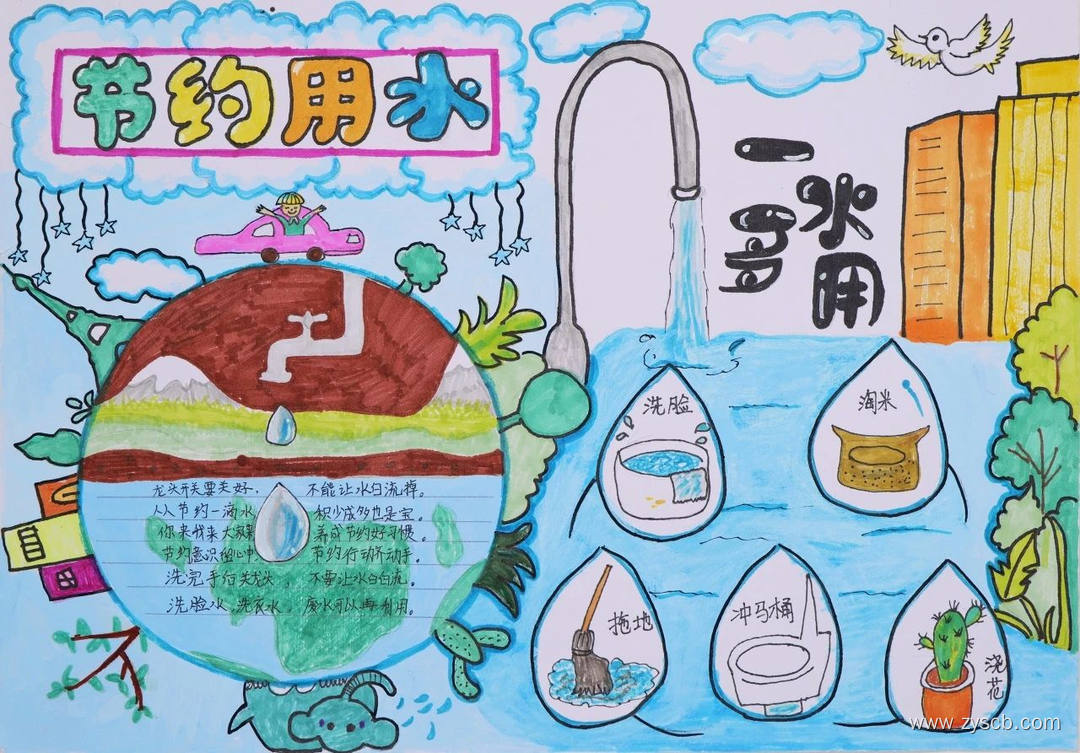 节约用水
一水
多用
龙头开关要关好, 不能让水白流掉。
人人节约一滴水, 积少成多也是宝。
你来我来大家来 养成节约好习惯。
节约意识留心中 节约行动齐动手。
洗完手后关龙头, 不要让水白白流。
洗脸水 洗衣水, 废水可以再利用。
洗脸
淘米
拖地
冲马桶
浇花
www.zyscb.com